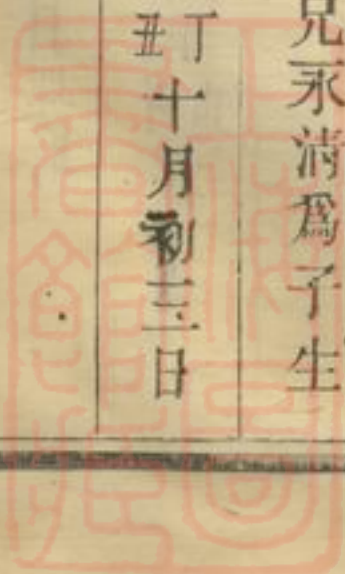 兄永清為子生
丁丑十月初三日